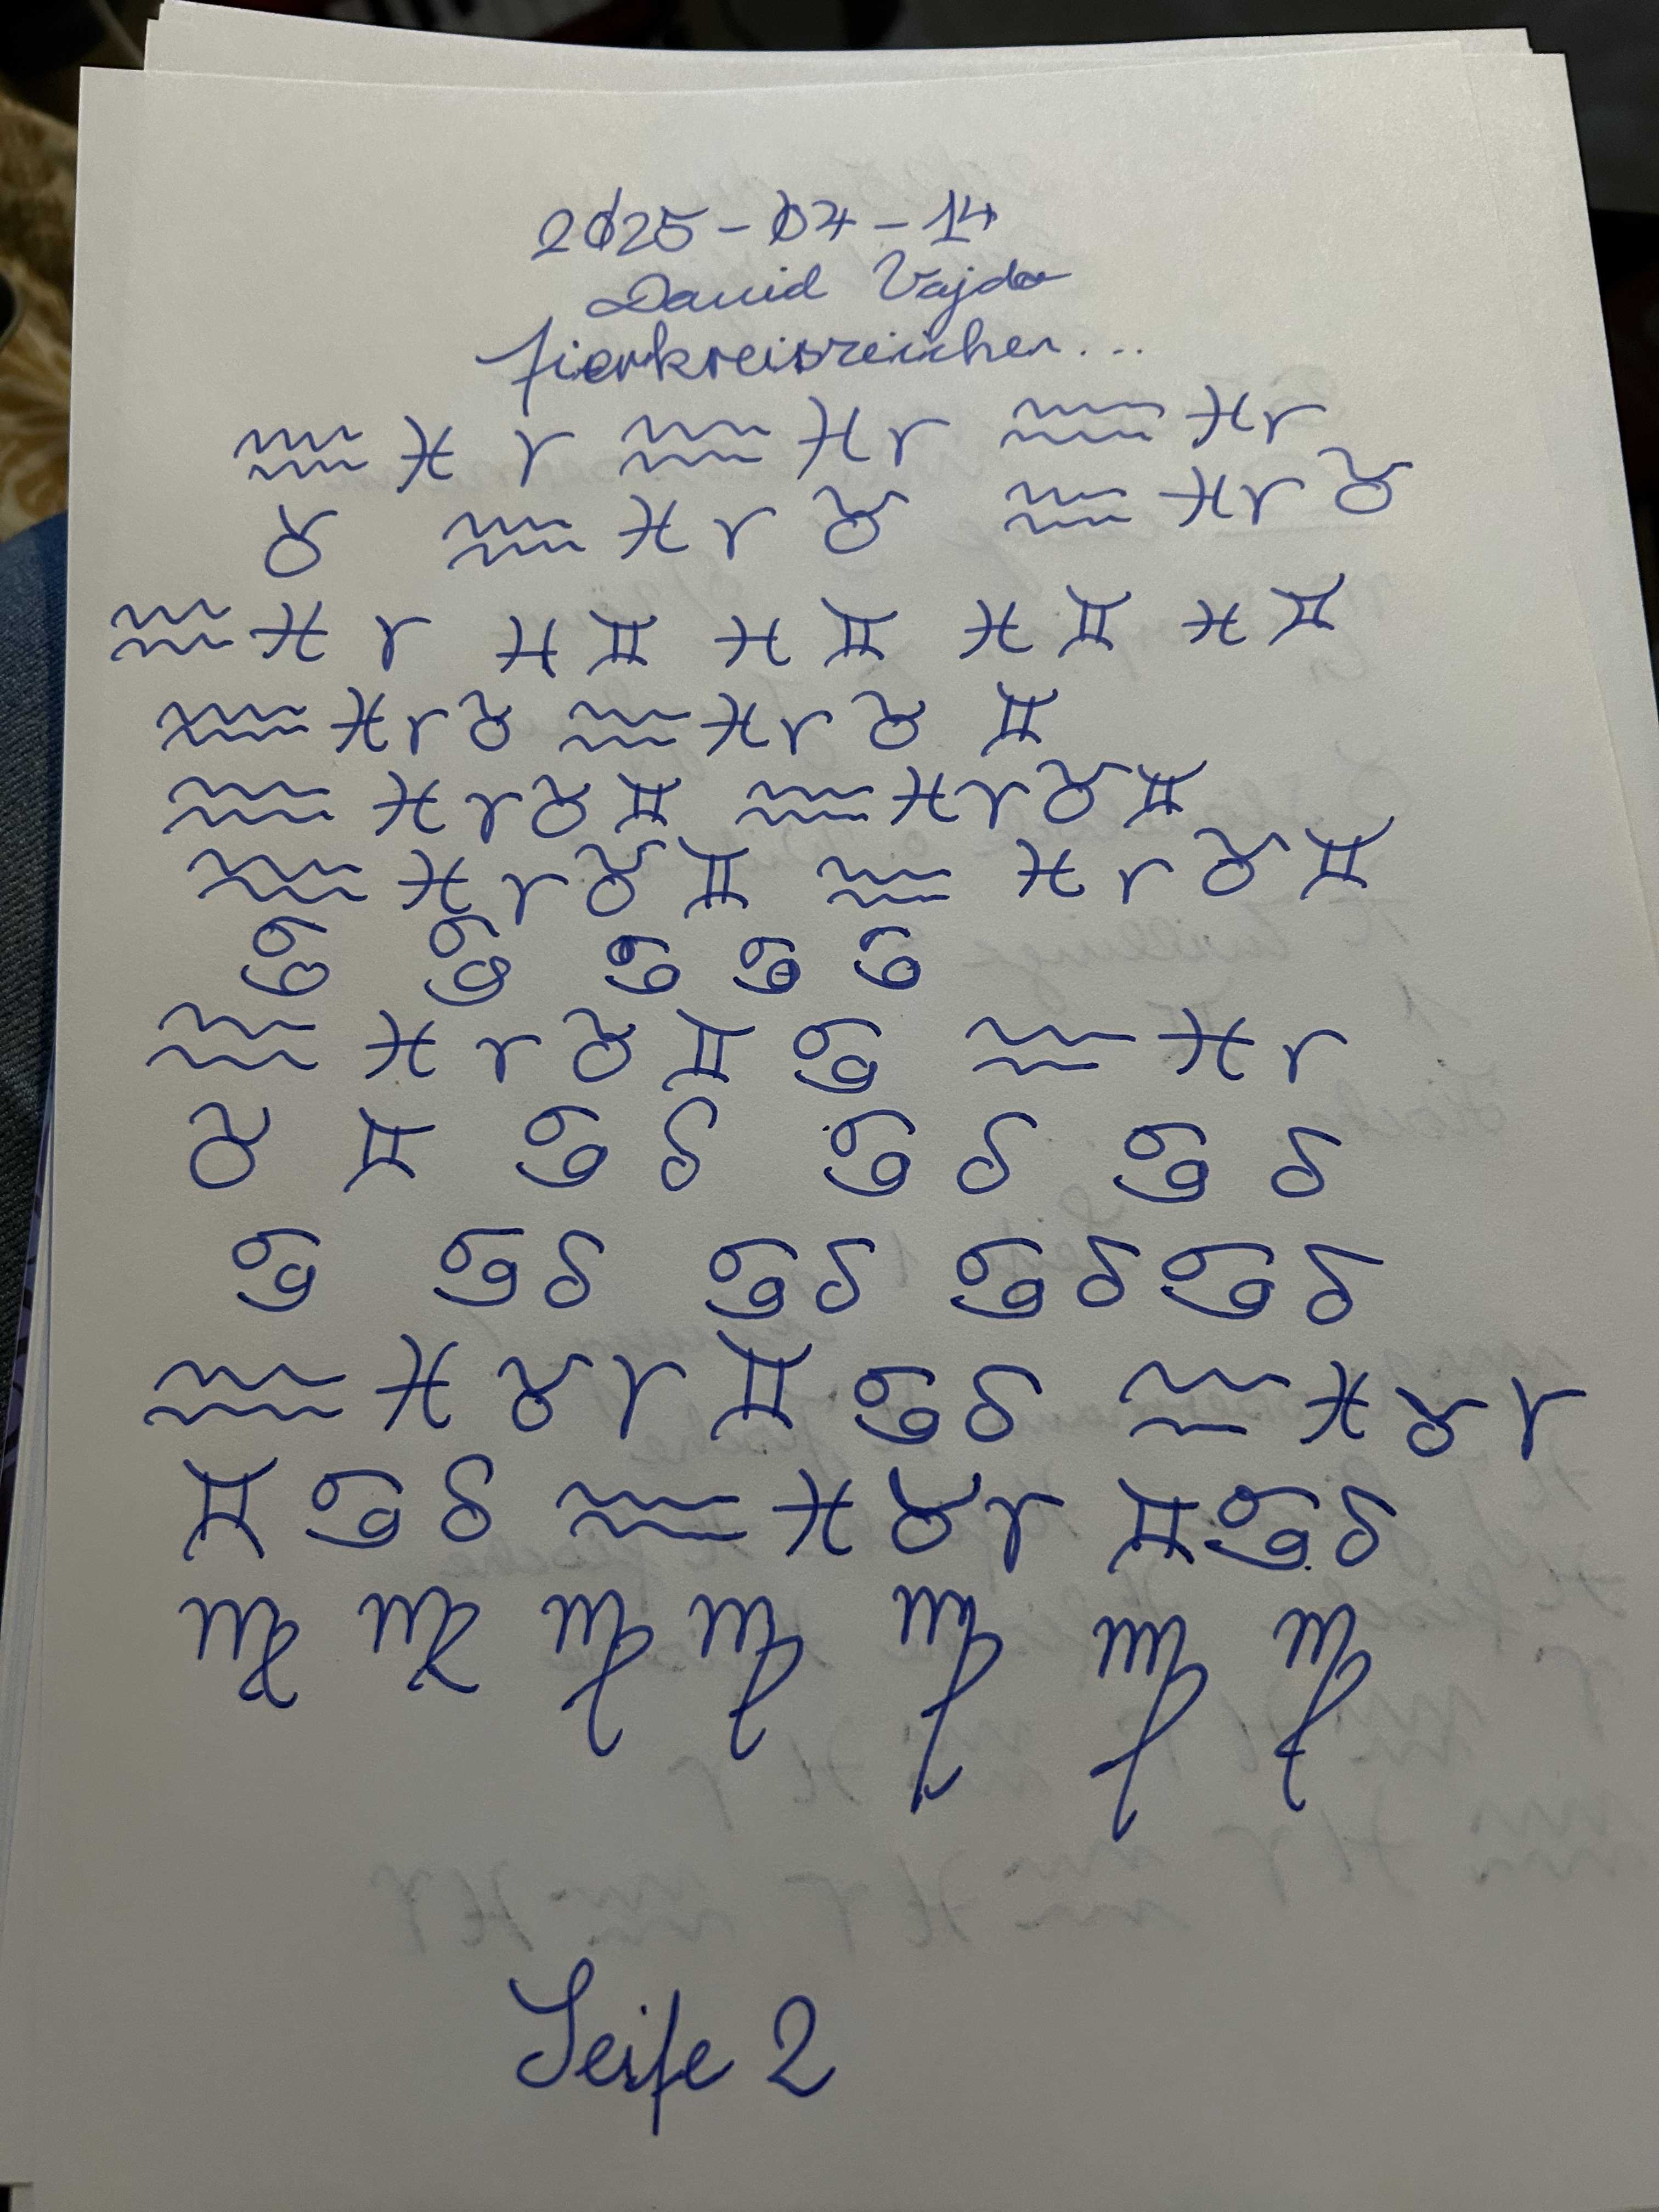 2025-07-14
David Vajda
Tierkreiszeichen...
♒ ♓ ♈ ♒ ♓ ♈ ♒ ♓ ♈
♉ ♒ ♓ ♈ ♉ ♒ ♓ ♈ ♉
♒ ♓ ♈ ♓ ♊ ♓ ♊ ♓ ♊ ♓ ♊
♒ ♓ ♈ ♉ ♒ ♓ ♈ ♉ ♊
♒ ♓ ♈ ♉ ♊ ♒ ♓ ♈ ♉ ♊
♒ ♓ ♈ ♉ ♊ ♒ ♓ ♈ ♉ ♊
♋ ♋ ♋ ♋ ♋
♒ ♓ ♈ ♉ ♊ ♋ ♒ ♓ ♈
♉ ♊ ♋ ♌ ♋ ♌ ♋ ♌
♋ ♋ ♌ ♋ ♌ ♋ ♌ ♋ ♌
♒ ♓ ♉ ♈ ♊ ♋ ♌ ♒ ♓ ♉ ♈
♊ ♋ ♌ ♒ ♓ ♉ ♈ ♊ ♋ ♌
♍ ♍ ♍ ♍ ♍ ♍ ♍
Seite 2